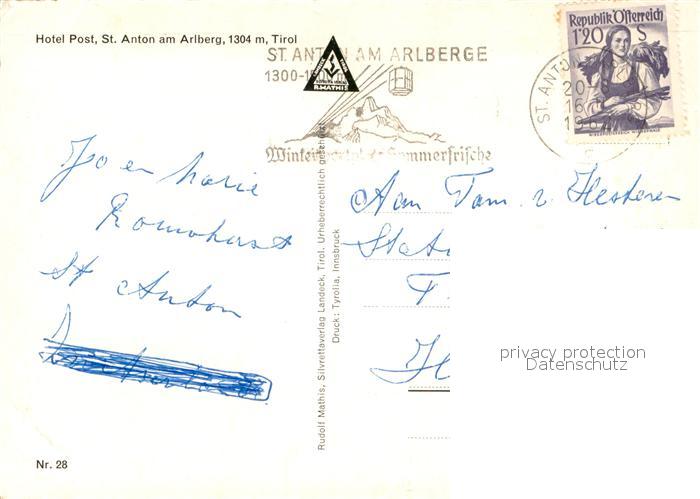 Hotel Post, St. Anton am Arlberg, 1304 m, Tirol
ST. ANTON AM ARLBERGE
1300-1
R.MATHIS
Wintersport Sommerfrische
Republik Österreich
1'20 S
ST. ANTON
20-
16.
19
Jo en Marie
St Anton
Aan Fam. v. Hesteren
Stat
F.
H
Rudolf Mathis, Silvrettaverlag Landeck, Tirol. Urheberrechtlich geschützt
Druck: Tyrolia, Innsbruck
privacy protection
Datenschutz
Nr. 28